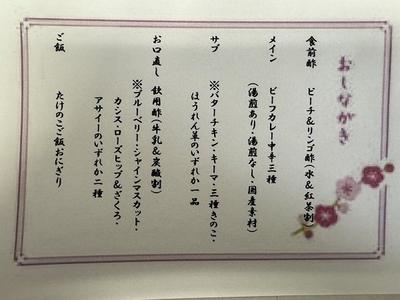 おしながき
食前酢　ピーチ&リンゴ酢(水&紅茶割)
メイン　ビーフカレー中辛三種
(湯煎あり・湯煎なし・国産素材)
サブ　※バターチキン・キーマ・三種きのこ・
ほうれん草のいずれか一品
お口直し　飲用酢(牛乳&炭酸割)
※ブルーベリー・シャインマスカット・
カシス・ローズヒップ&ざくろ・
アサイーのいずれか二種
ご飯　たけのこご飯おにぎり